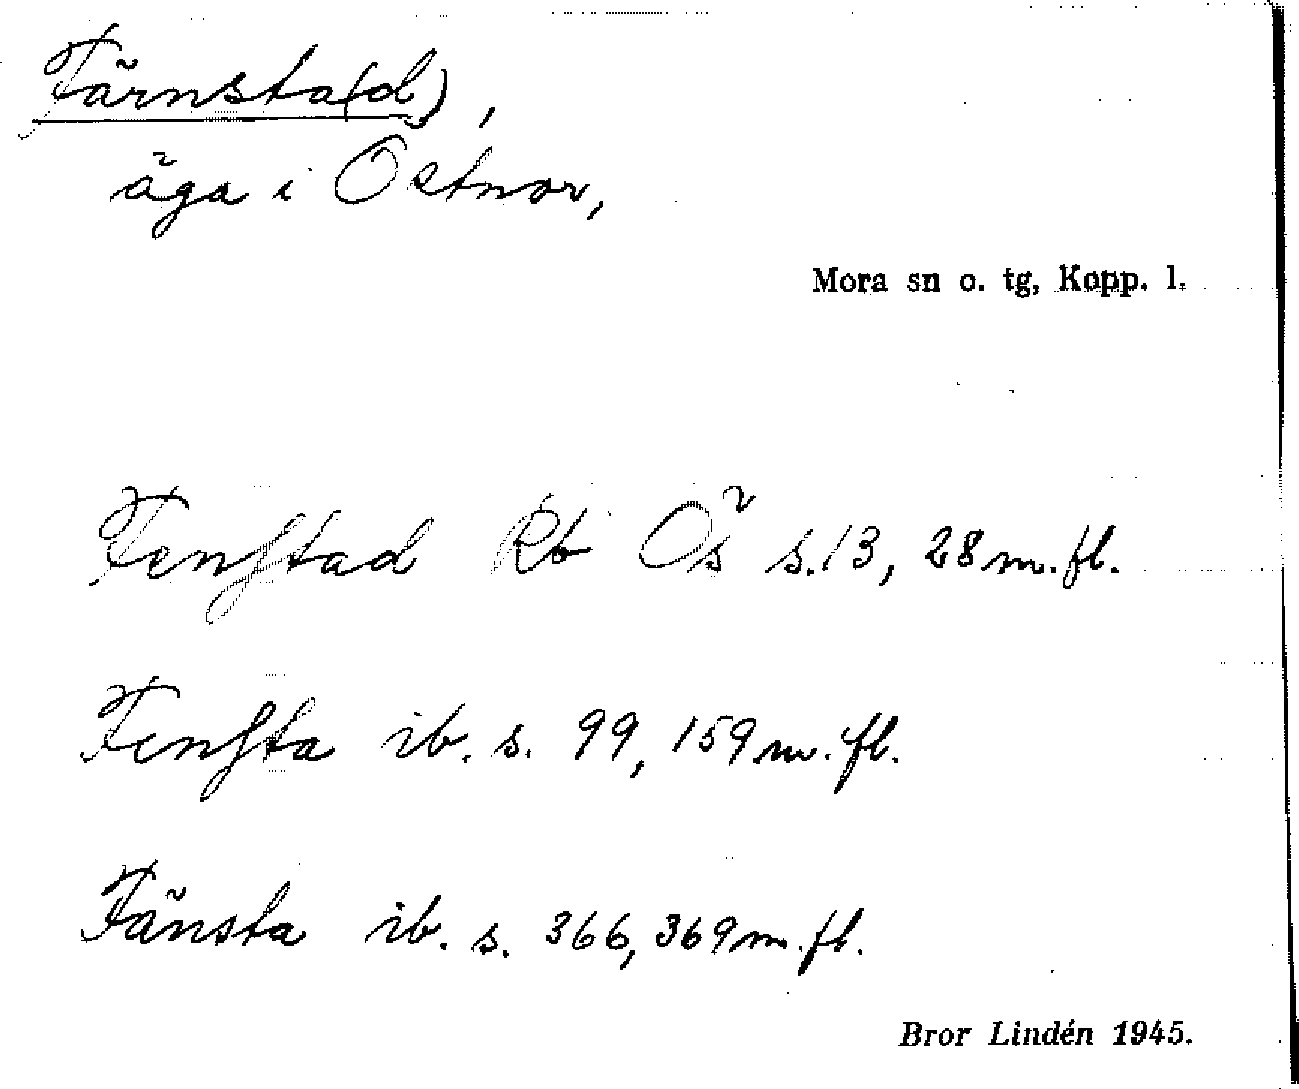 Färnsta(d),
äga i Östnor,
Mora sn o. tg, Kopp. l.
Fenstad Rb Ös s. 13, 28 m.fl.
Fensta ib. s. 99, 159 m.fl.
Fänsta ib. s. 366, 369 m.fl.
Bror Lindén 1945.